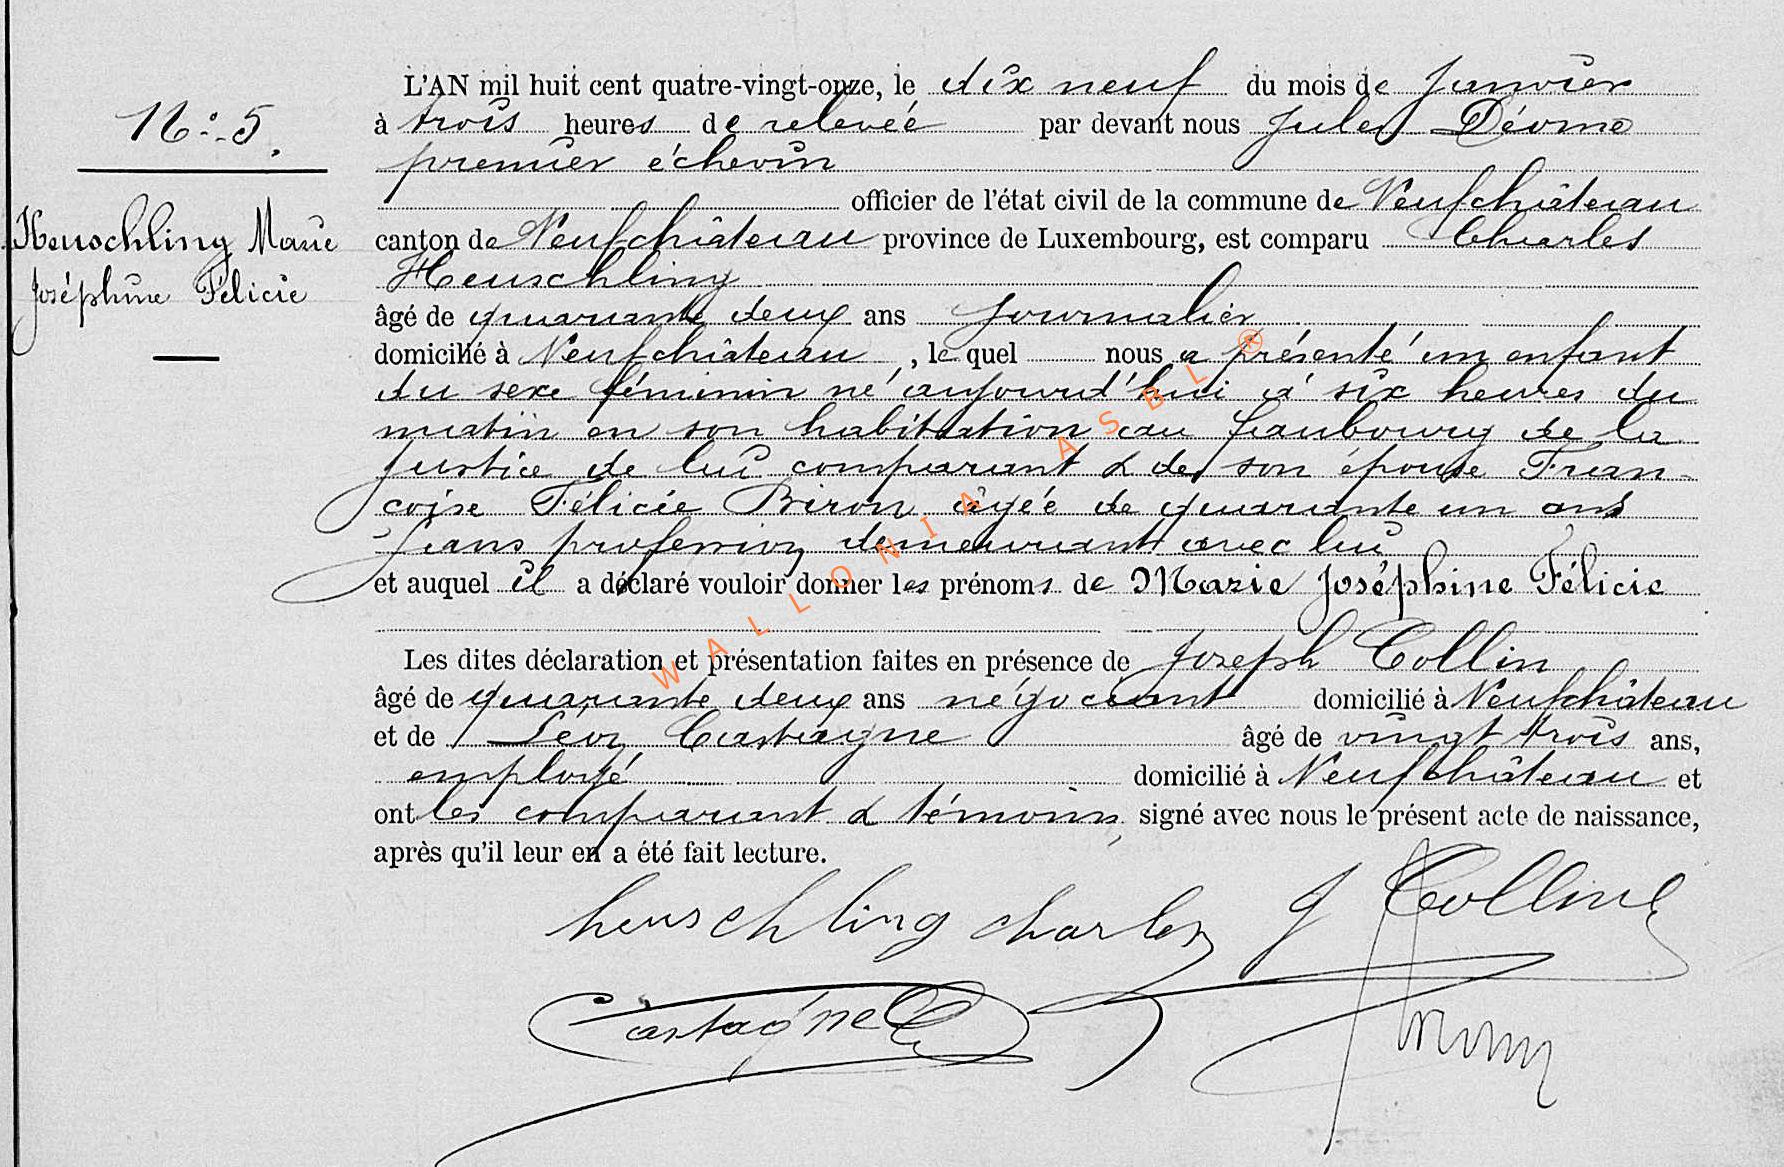 N° 5.
Heuschling Marie
Joséphine Félicie
L'AN mil huit cent quatre-vingt-onze, le dix neuf du mois de Janvier
à trois heures de relevée par devant nous Jules
premier échevin
officier de l'état civil de la commune de Neufchâteau
canton de Neufchâteau province de Luxembourg, est comparu Charles
Heuschling
âgé de quarante deux ans Journalier
domicilié à Neufchâteau, le quel nous a présenté un enfant
du sexe féminin né aujourd'hui à six heures du
matin en son habitation au faubourg de la
Justice de lui comparant & de son épouse Fran-
çoise Félicie Biron âgée de quarante un ans
sans profession demeurant avec lui
et auquel il a déclaré vouloir donner les prénoms de Marie Joséphine Félicie
Les dites déclaration et présentation faites en présence de Joseph Collin
âgé de quarante deux ans négociant domicilié à Neufchâteau
et de Léon Castagne âgé de vingt trois ans,
employé domicilié à Neufchâteau et
ont les comparant & témoins signé avec nous le présent acte de naissance,
après qu'il leur en a été fait lecture.
heuschling charles J Collin
Castagne
WALLONIA ASBL ®